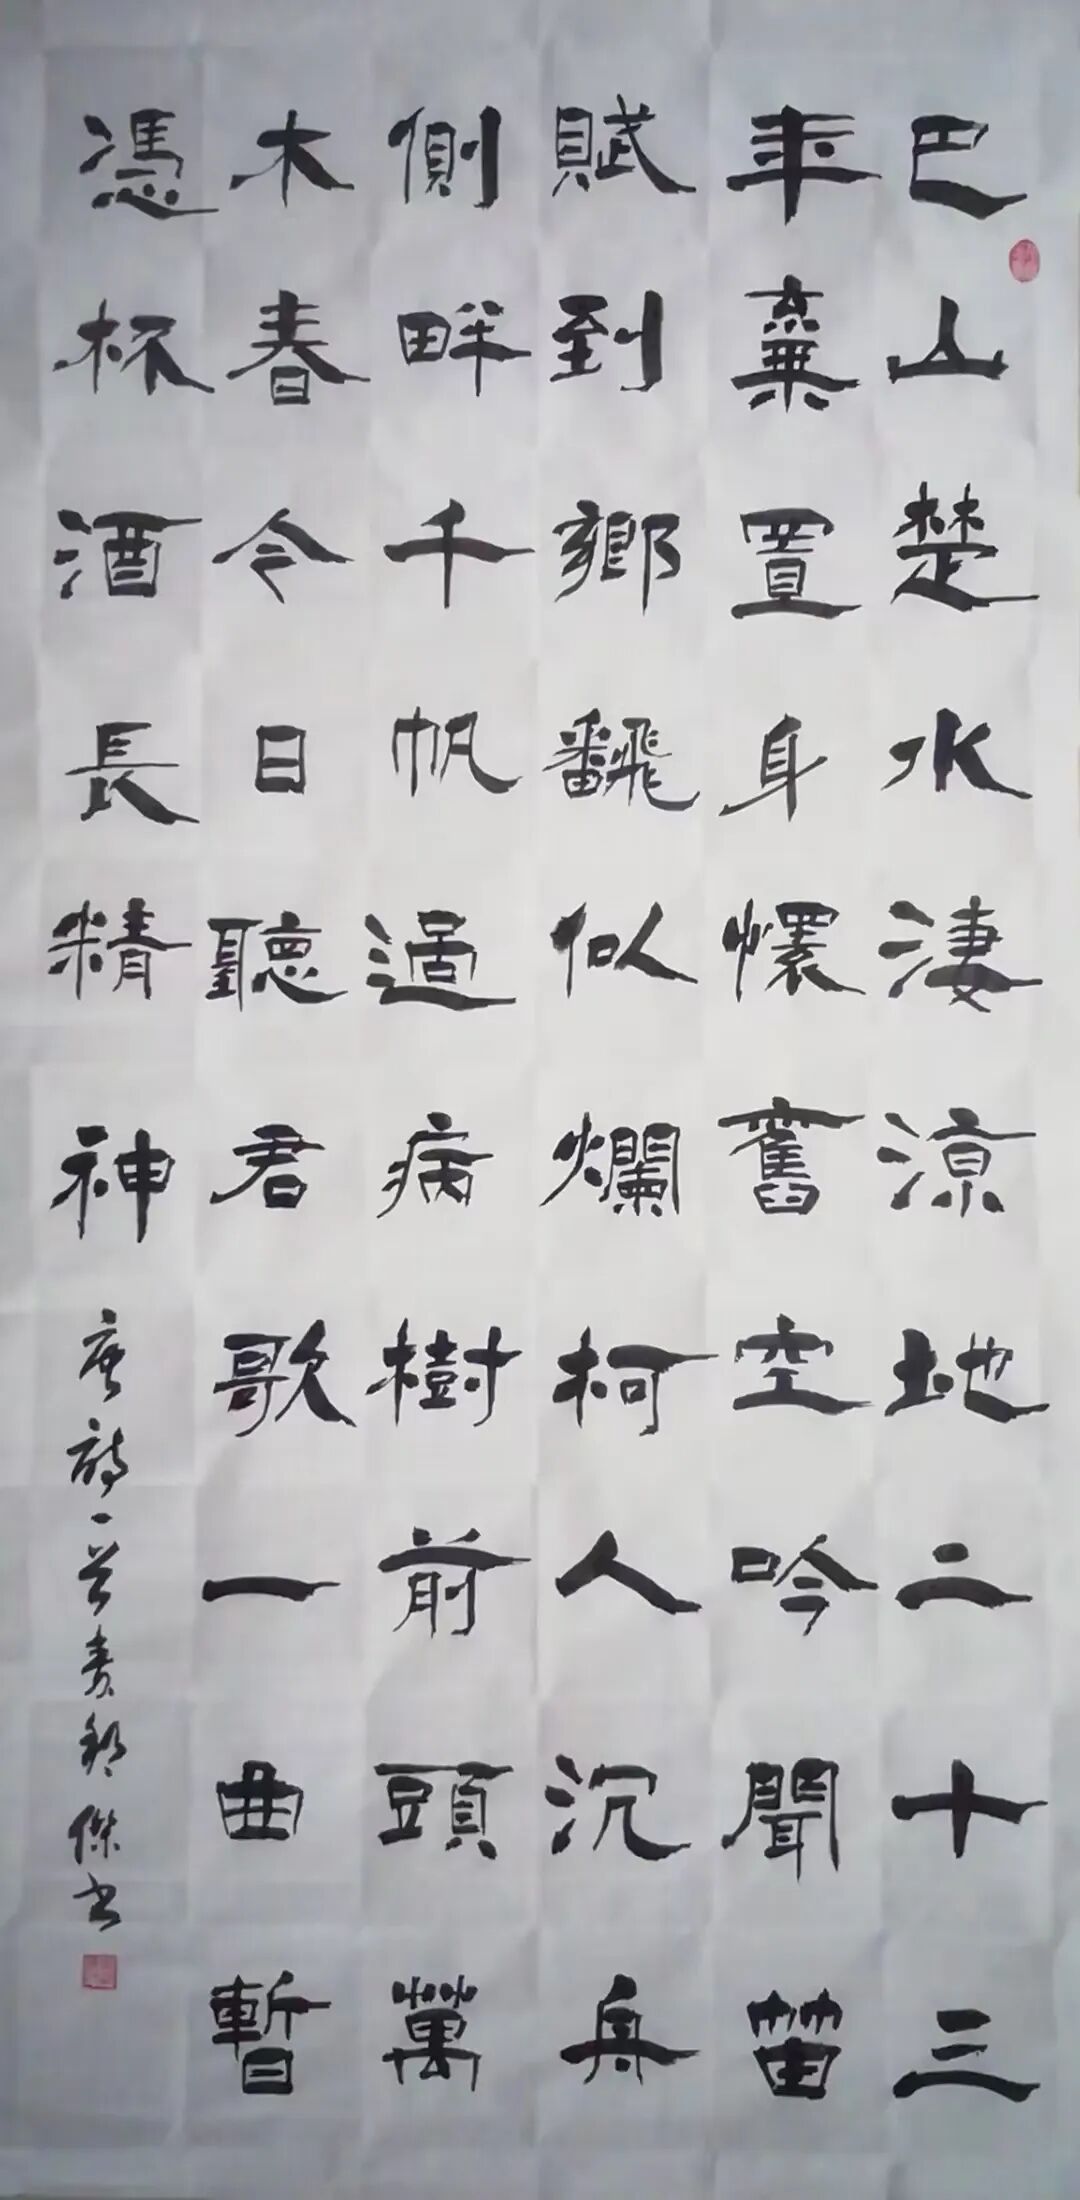 巴山楚水淒涼地二十三
年棄置身懷舊空吟聞笛
賦到鄉飜似爛柯人沉舟
側畔千帆過病樹前頭萬
木春今日聽君歌一曲暫
憑杯酒長精神
唐詩一首 傑書